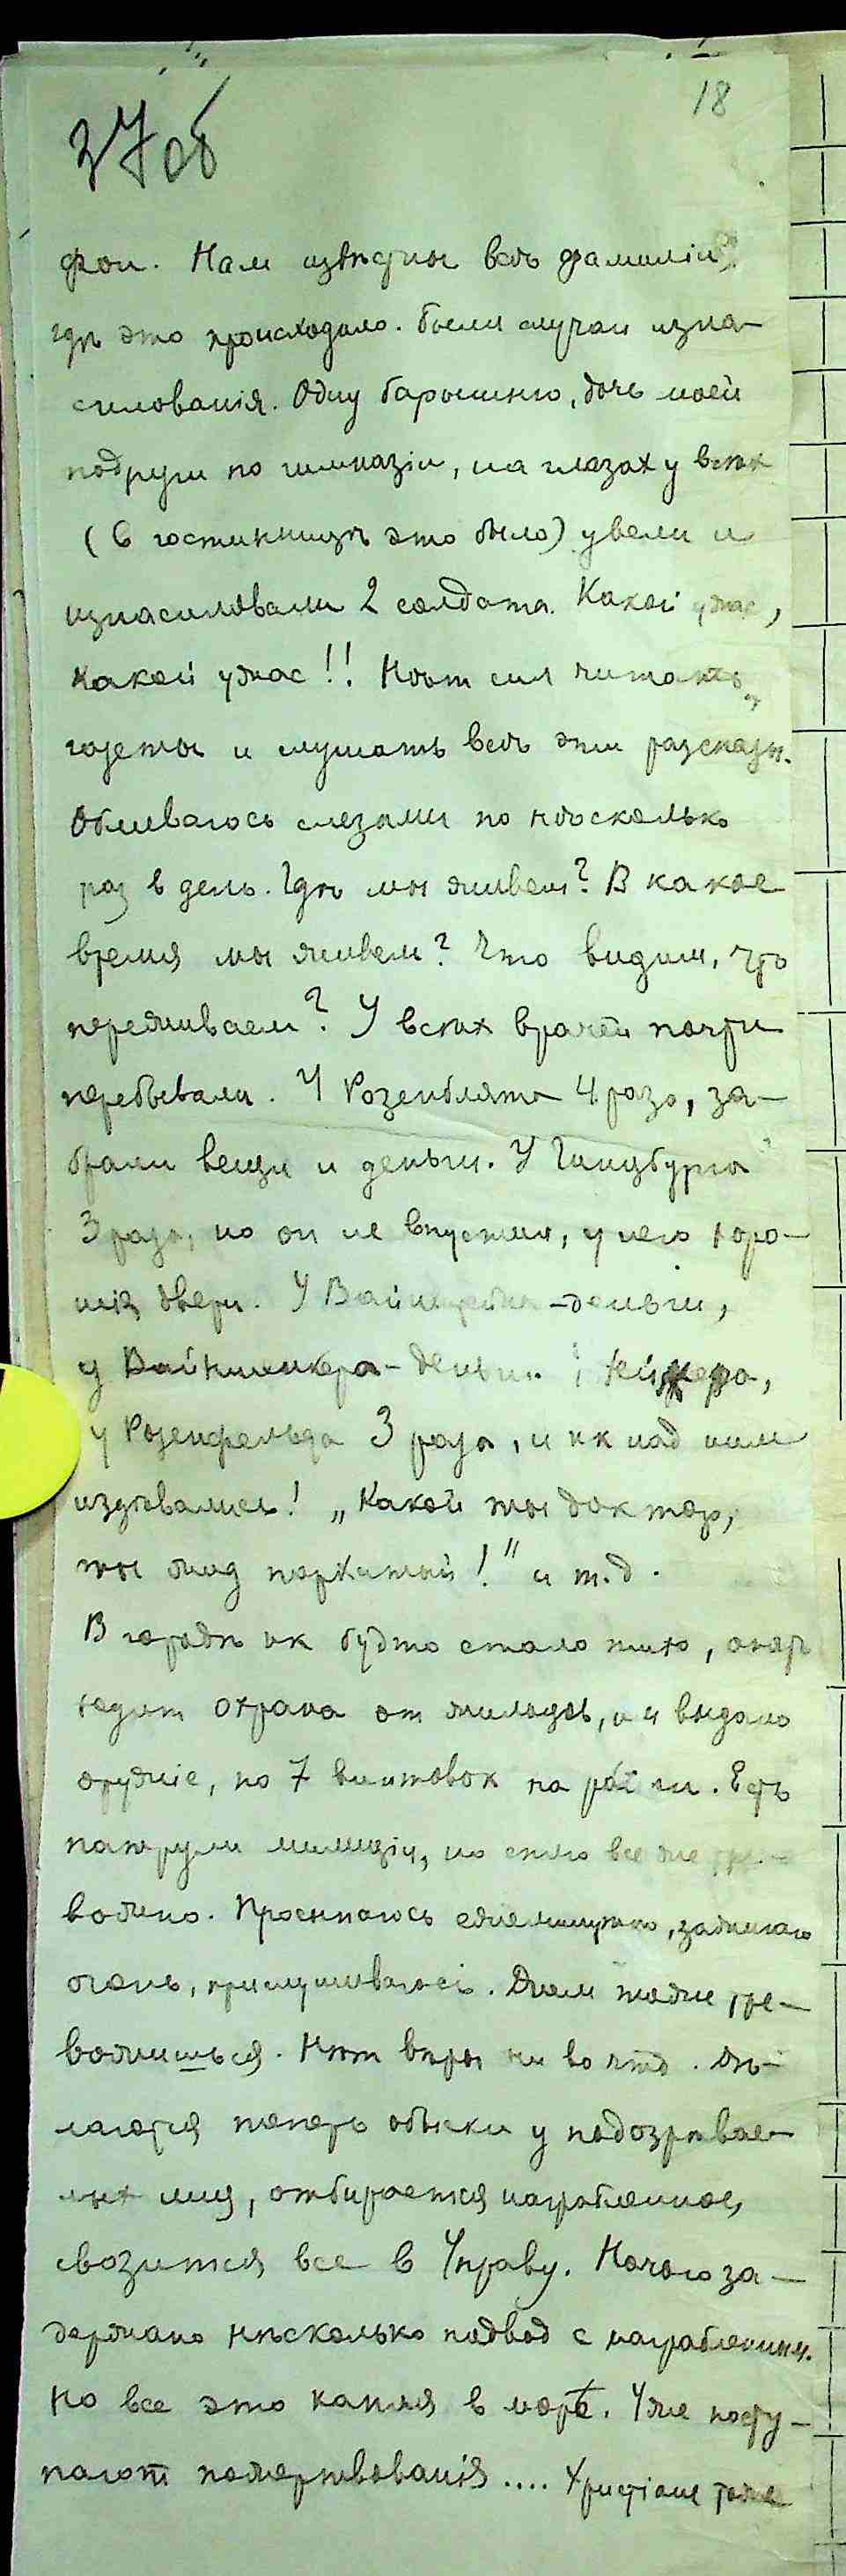 18
37об
фои. Нам извѣстны ведь фамиліи,
гдѣ это происходило. Были случаи изна-
силованія. Одну барышню, дочь моей
подруги по гимназіи, на глазах у всѣх
(в гостинницѣ это было) увели и
изнасиловали 2 солдата. Какой ужас,
какой ужас!! Нѣт сил читать
газеты и слушать всѣ эти разсказы.
Обливаюсь слезами по нѣсколько
раз в день. Гдѣ мы живем? В какое
время мы живем? Что видим, что
переживаем? У всѣх врачей почти
перебывали. У Розенблята 4 раза, за-
брали вещи и деньги. У Гинцбурга
3 раза, но он не впустил, у него хоро-
шія двери. У - деньги,
у Вайншенкера - деньги.
у Розенфельда 3 раза, и как над ним
издѣвались! „Какой ты доктор,
ты жид пархатый!" и т.д.
В городѣ как будто стало тихо,
ходит охрана от жильцов, им выдано
оружіе, по 7 винтовок на . Есть
патрули милиціи, но спать все же тре-
вожно. Просыпаюсь ежеминутно, зажигаю
огонь, прислушиваюсь. Днем тоже тре-
вожишься. Нѣт вѣры ни во что. Дѣ-
лаются теперь обыски у подозрѣвае-
мых лиц, отбирается награбленное,
свозится все в Управу. Ночью за-
держано нѣсколько подвод с награбленным.
Но все это капля в морѣ. Уже посту-
пают пожертвованія.... Христіане тоже